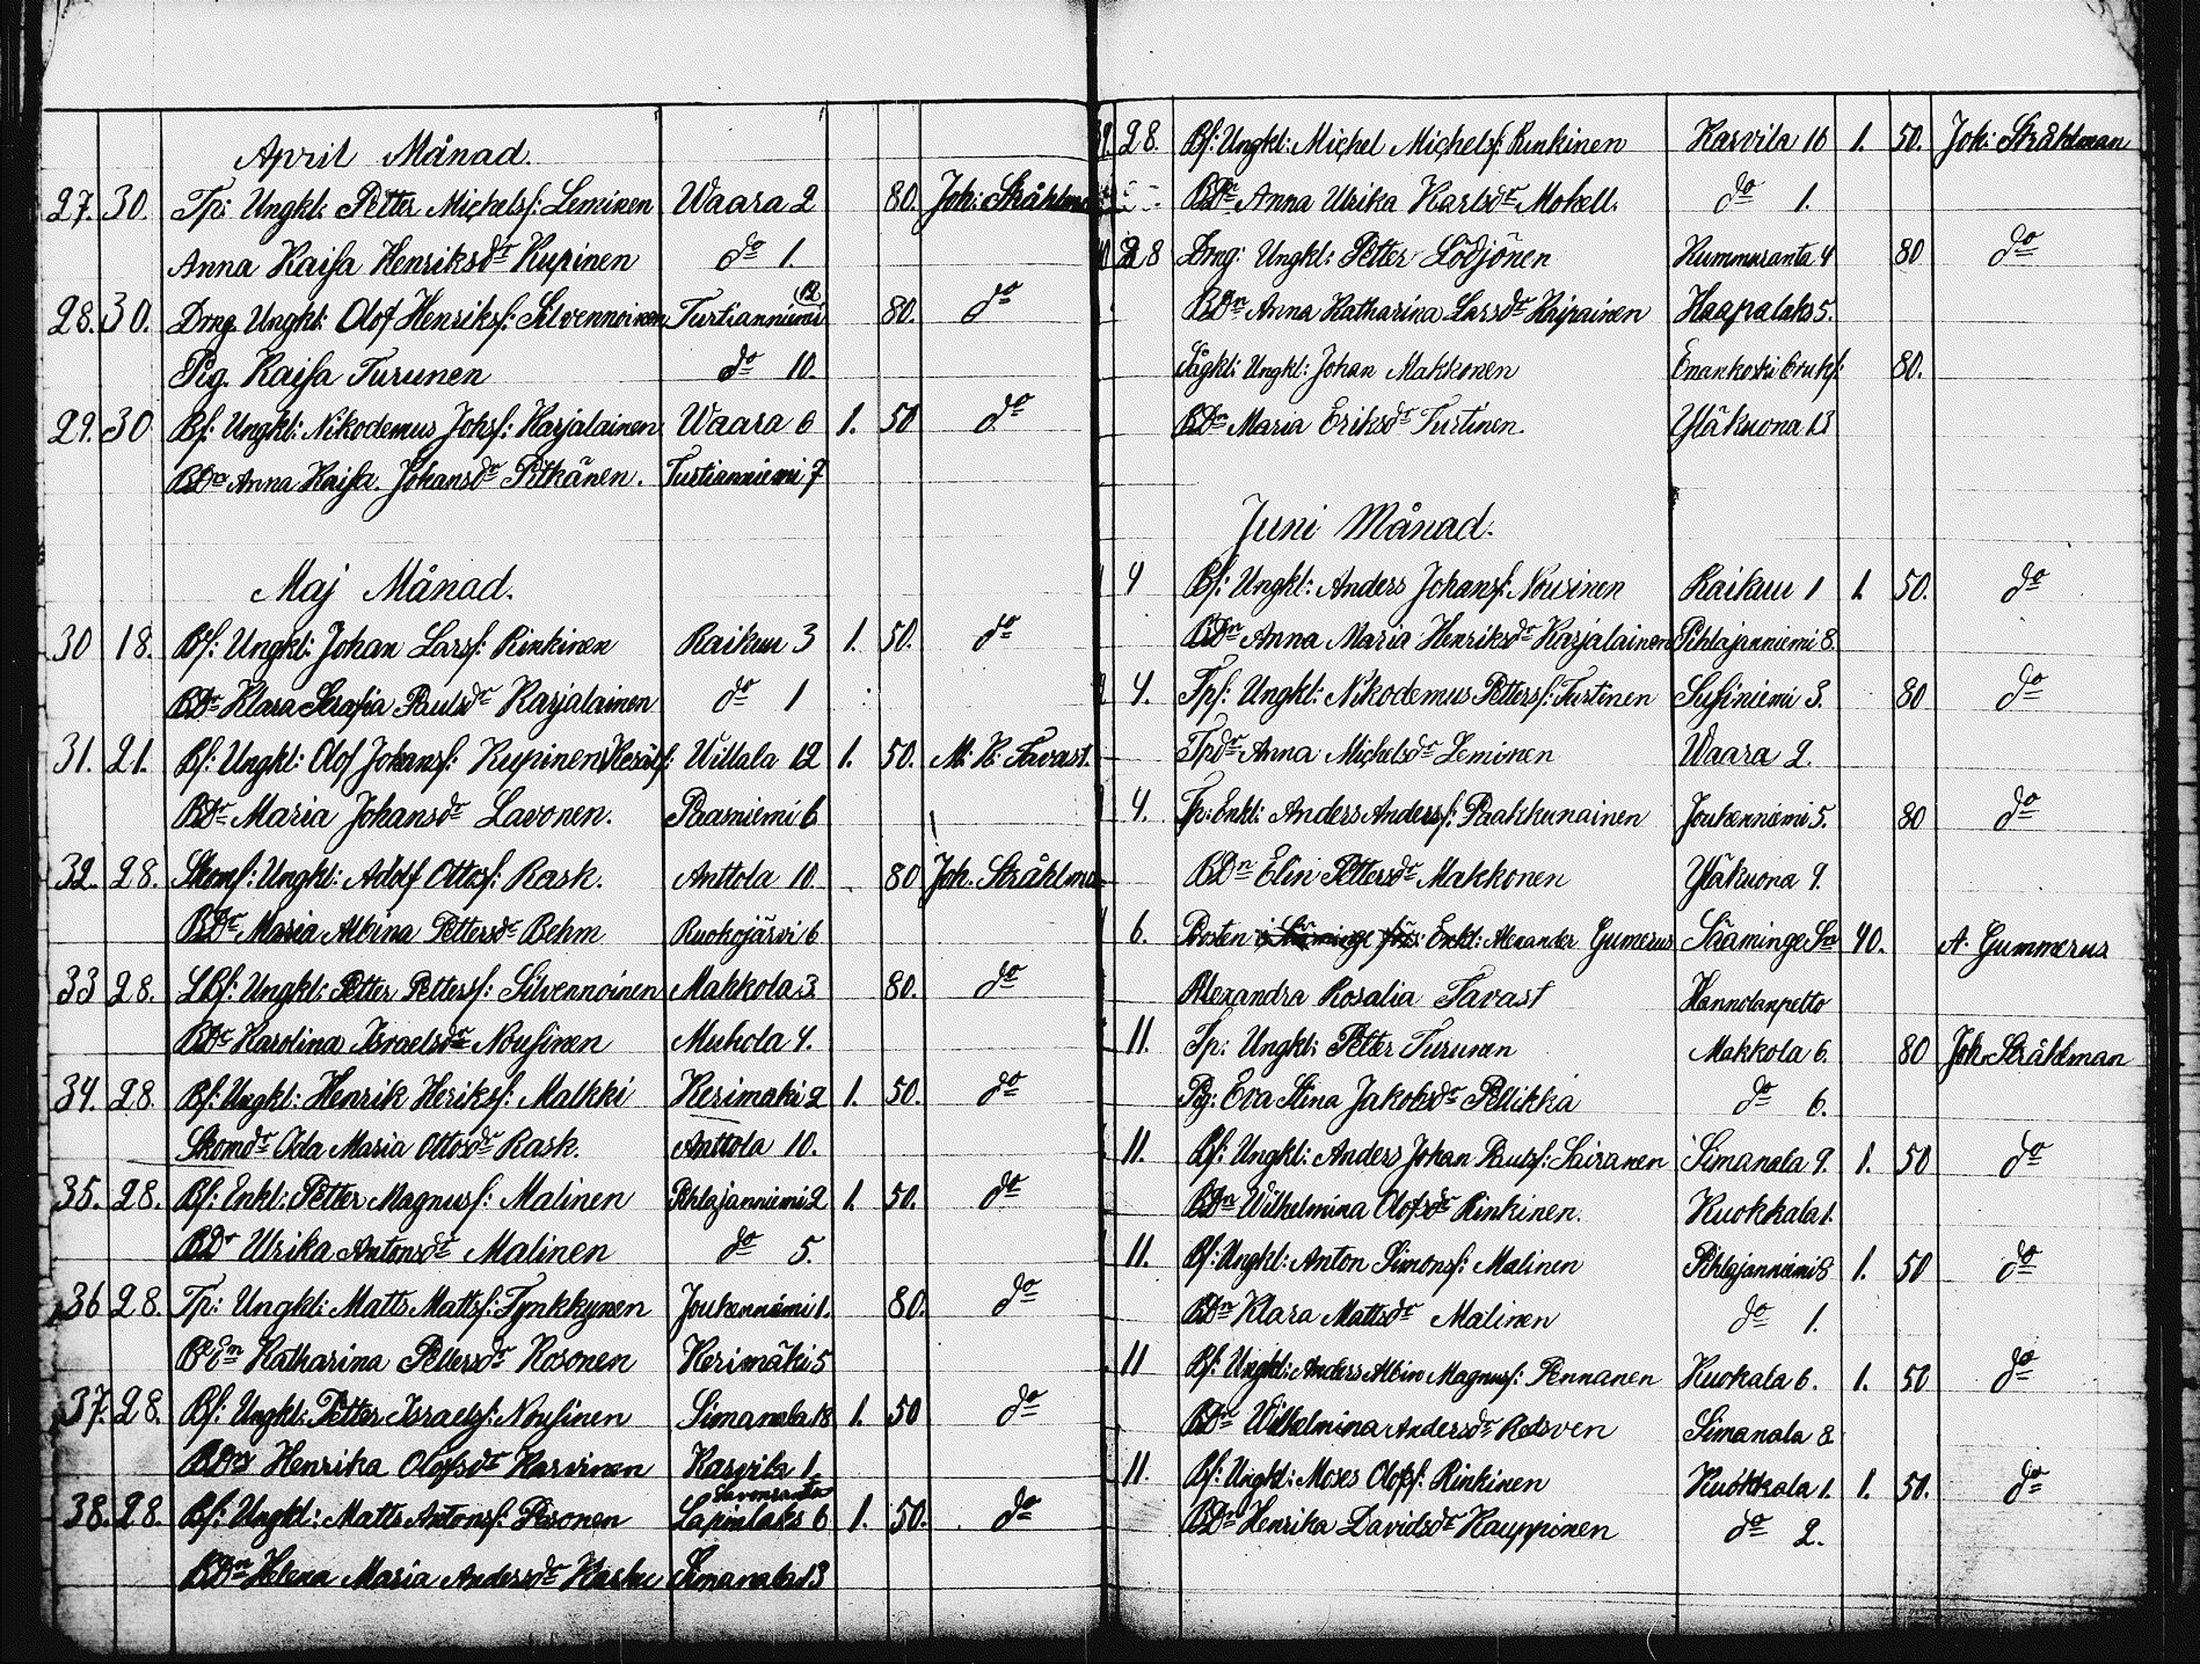 April Månad.
27. 30. Tp: Ungkl: Petter Michelsf: Leminen Waara 2 80. Joh: Stråhlman
Anna Kaisa Henriksdr Kupinen do 1.
28. 30. Drng. Ungkl: Olof Henriksf: Silvennoinen Turtianniemi 12 80. do
Pig. Kaisa Turunen do 10.
29. 30 Bf: Ungkl: Nikodemus Johsf: Karjalainen Waara 6 1. 50 do
BDr Anna Kaisa Johansdr Pitkänen. Turtianniemi 7
Maj Månad.
30 18. Bf: Ungkl: Johan Larsf: Rinkinen Raikuu 3 1. 50. do
BDr Klara Serafia Paulsdr Karjalainen do 1
31. 21. Bf: Ungkl: Olof Johansf: Kupinen Uittala 12 1. 50. M. K. Tavast.
BDr Maria Johansdr Lavonen. Paasniemi 6
32. 28. Skomf: Ungkl: Adolf Ottosf: Rask. Anttola 10. 80 Joh. Stråhlman
BDr Maria Albina Pettersdr Behm Ruokojärvi 6
33 28. LBf: Ungkl: Petter Pettersf: Silvennoinen Makkola 3. 80. do
BDr Karolina Israelsdr Nousinen Muhola 4.
34. 28. Bf: Ungkl: Henrik Heriksf: Malkki Kerimäki 2 1. 50. do
Skomdr Ida Maria Ottosdr Rask. Anttola 10.
35. 28. Bf: Enkl: Petter Magnusf: Malinen Pihlajanniemi 2 1. 50. do
BDr Ulrika Antonsdr Malinen do 5.
36 28. Tp: Ungkl: Matts Mattsf: Tynkkynen Jouhenniemi 1. 80. do
BEn Katharina Pettersdr Kosonen Kerimäki 5
37. 28. Bf: Ungkl: Petter Israelsf: Nousinen Simanala 18 1. 50 do
BDr Henrika Olofsdr Karvinen Karvila 1
Savonranta
38. 28. Bf: Ungkl: Matts Antonsf: Pesonen Lapinlaks 6 1. 50. do
BDn Helena Maria Andersdr Kasku Simanala 13
39. 28. Bf: Ungkl: Michel Michelsf: Rinkinen Karvila 16 1. 50. Joh: Stråhlman
BDn Anna Ulrika Karlsdr Mokell. do 1.
28 Drng: Ungkl: Petter Lödjönen Kummuranta 4 80 do
BDn Anna Katharina Larsdr Haipainen Haapalaks 5.
Ungkl: Johan Makkonen Enankoski bruk 80.
BDn Maria Eriksdr Turtinen. Yläkuona 13
Juni Månad.
4 Bf: Ungkl: Anders Johansf: Nousinen Raikuu 1 1. 50. do
BDn Anna Maria Henriksdr Karjalainen Pihlajanniemi 8.
4. Tpf: Ungkl: Nikodemus Pettersf: Turtinen Susiniemi 3. 80 do
Tpdr Anna Michelsdr Leminen Waara 2.
4. Tp: Enkl: Anders Andersf: Paakkunainen Jouhenniemi 5. 80 do
BDn Elin Pettersdr Makkonen Yläkuona 9.
6. Prosten i Säminge Enkl: Alexander Gumerus Sääminge Sn 40. A. Gummerus
Alexandra Rosalia Tavast Hannolanpelto
11. Tp: Ungkl: Petter Turunen Makkola 6. 80 Joh. Stråhlman
Pig: Eva Stina Jakobsdr Pellikka do 6.
11. Bf: Ungkl: Anders Johan Paulsf: Sairanen Simanala 9. 1. 50 do
BDn Wilhelmina Olofsdr Rinkinen. Kuokkala 1.
11. Bf: Ungkl: Anton Simonsf: Malinen Pihlajanniemi 8 1. 50 do
BDn Klara Mattsdr Malinen do 1.
11 Bf: Ungkl: Anders Albin Magnusf: Pennanen Kuokala 6. 1. 50 do
BDn Wilhelmina Andersdr Redsven Simanala 8
11. Bf: Ungkl: Moses Olofsf: Rinkinen Kuokkala 1. 1. 50. do
BDn Henrika Davidsdr Kauppinen do 2.